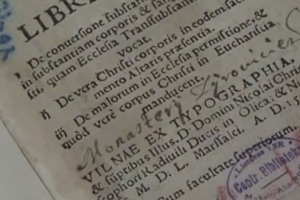 LIBRI
De conuersione substan
in substantiam corporis & san
sti, quam Ecclesia Transubstan
vocat.
De vera Christi corporis in eodem sacra
mento Altaris præsentia.
iij De malorum in Ecclesia permissione, &
quòd verè corpus Christi in Eucharistia
manducent.
Monasterij
VILNAE EX TYPOGRAPHIA,
& sumptibus Illus. D. Domini Nicolai Christ
ophori Radiuili Ducis in Olica & Nies
M. D. L. Marsalci. A. D.
cum facultate superiorum.